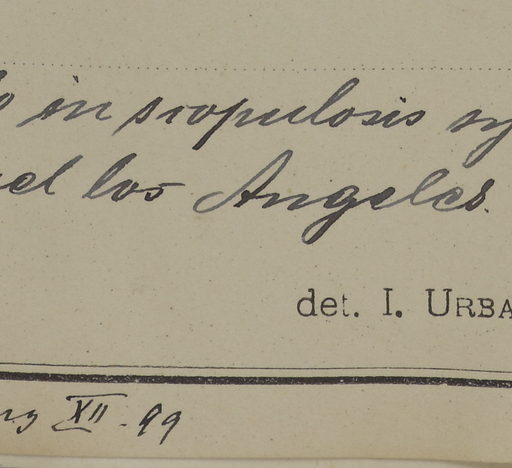 in scopulosis
los Angeles.
det. I. URBA
XII. 99